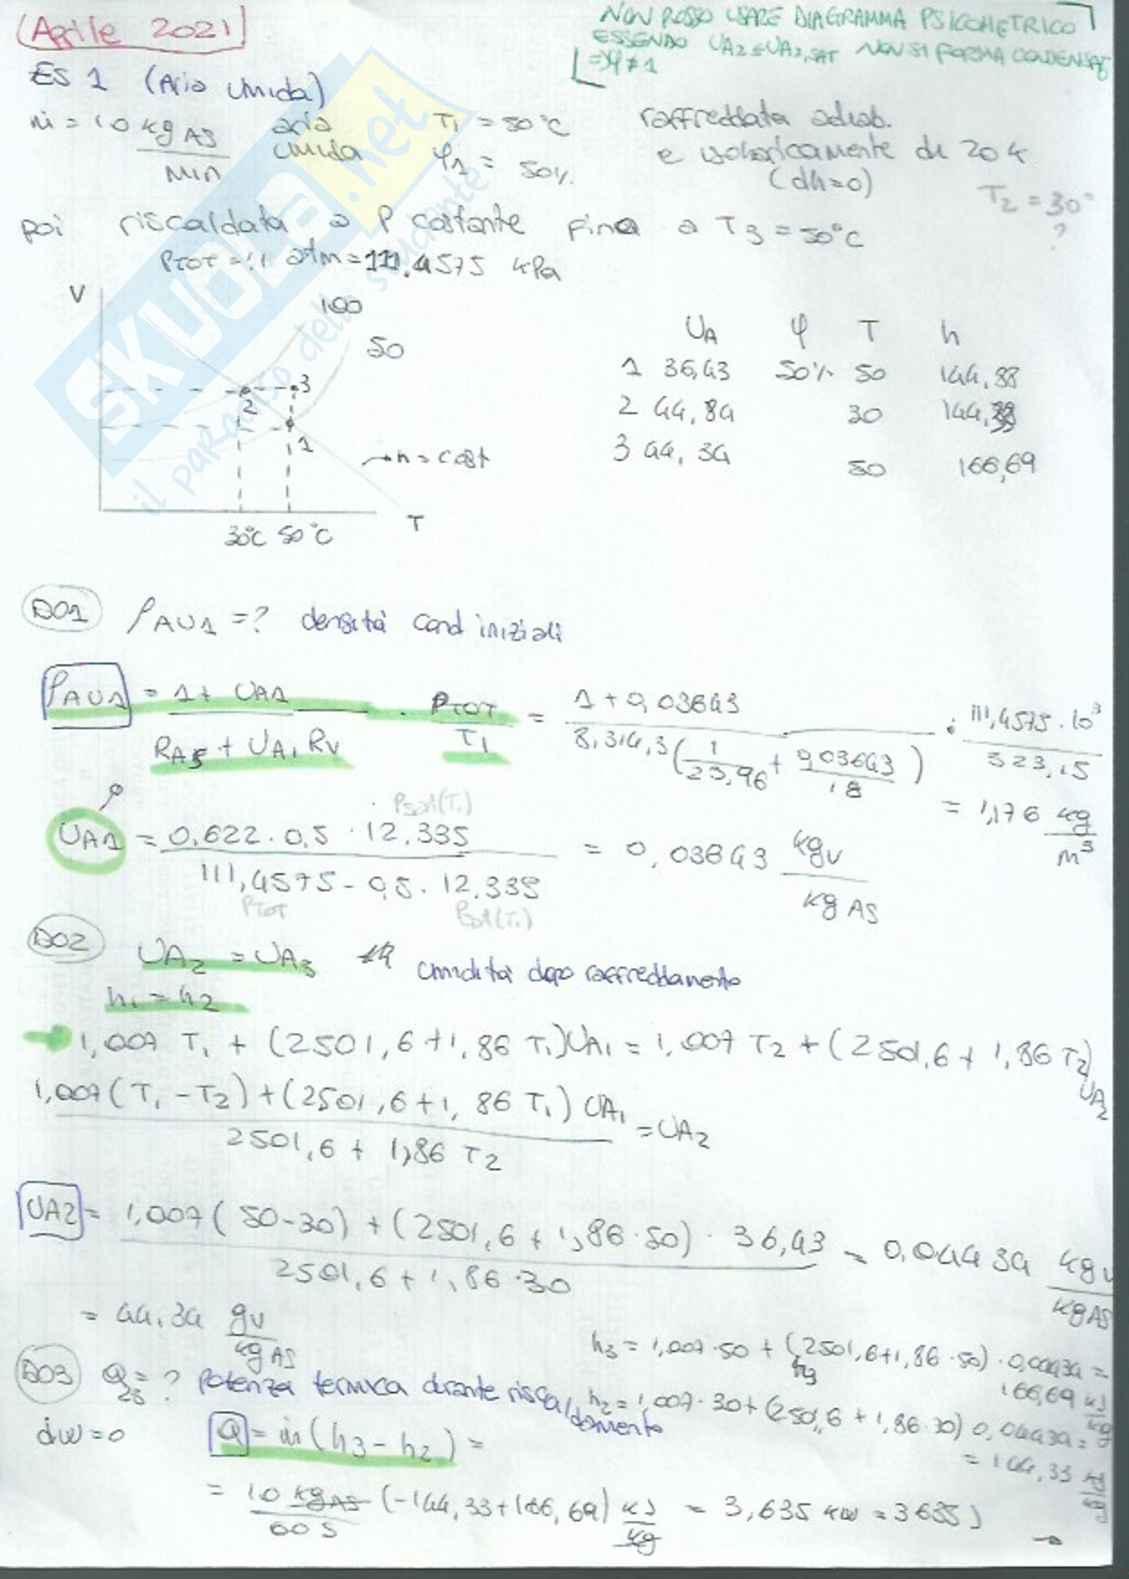 (Aprile 2021)
NON POSSO USARE DIAGRAMMA PSICOMETRICO
ESSENDO UA2=UA3,SAT NON SI FORMA CONDENSA
=> φ≠1
ES 1 (Aria Umida)
ṁ = 10 kgAS/min aria umida T1 = 50°C φ1 = 50%
raffreddata adiab. e isobaricamente di 20 K (dh=0)
T2 = 30° ?
poi riscaldata a P costante fino a T3 = 50°C
PTOT = 1,1 atm = 111,4575 kPa
V
100
50
3
2
1
h = cost
30°C 50°C T
UA φ T h
1 36,43 50% 50 144,88
2 44,84 30 144,33
3 44,34 50 166,69
D01 ρAU1 = ? densità cond iniziali
ρAU1 = (1 + UA1)/(RAS + UA1 RV) · PTOT/T1 = (1 + 0,03643)/(8314,3 (1/28,96 + 0,03643/18)) · 111,4575·10³/323,15
= 1,176 kg/m³
Psat(T1)
UA1 = 0,622 · 0,5 · 12,335/(111,4575 - 0,5 · 12,335) = 0,03643 kgv/kgAS
PTOT Psat(T1)
D02 UA2 = UA3 umidità dopo raffreddamento
h1 = h2
1,007 T1 + (2501,6 + 1,86 T1)UA1 = 1,007 T2 + (2501,6 + 1,86 T2) UA2
(1,007 (T1 - T2) + (2501,6 + 1,86 T1) UA1)/(2501,6 + 1,86 T2) = UA2
UA2 = (1,007 (50-30) + (2501,6 + 1,86·50) · 36,43)/(2501,6 + 1,86·30) = 0,04434 kgv/kgAS
= 44,34 gv/kgAS
h3 = 1,007·50 + (2501,6+1,86·50)·0,04434 =
h3
166,69 kJ/kg
D03 Q23 = ? Potenza termica durante riscaldamento
h2 = 1,007·30+(2501,6 + 1,86·30) 0,04434 =
= 144,33 kJ/kg
dw=0 Q = ṁ (h3 - h2) =
= 10 kgAS/60 s (-144,33+166,69) kJ/kg = 3,635 kW = 3635 J